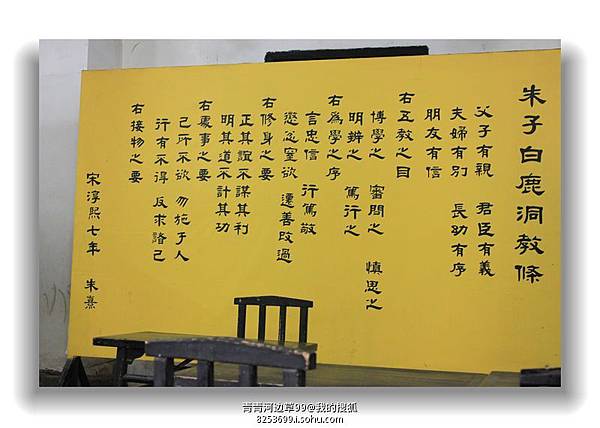 朱子白鹿洞教條
父子有親　君臣有義
夫婦有別　長幼有序
朋友有信
右五教之目
博學之　審問之　慎思之
明辨之　篤行之
右為學之序
言忠信　行篤敬
懲忿窒欲　遷善改過
右修身之要
正其誼不謀其利
明其道不計其功
右處事之要
己所不欲　勿施于人
行有不得　反求諸己
右接物之要
宋淳熙七年　朱熹
青青河边草99@我的搜狐
8253699.i.sohu.com